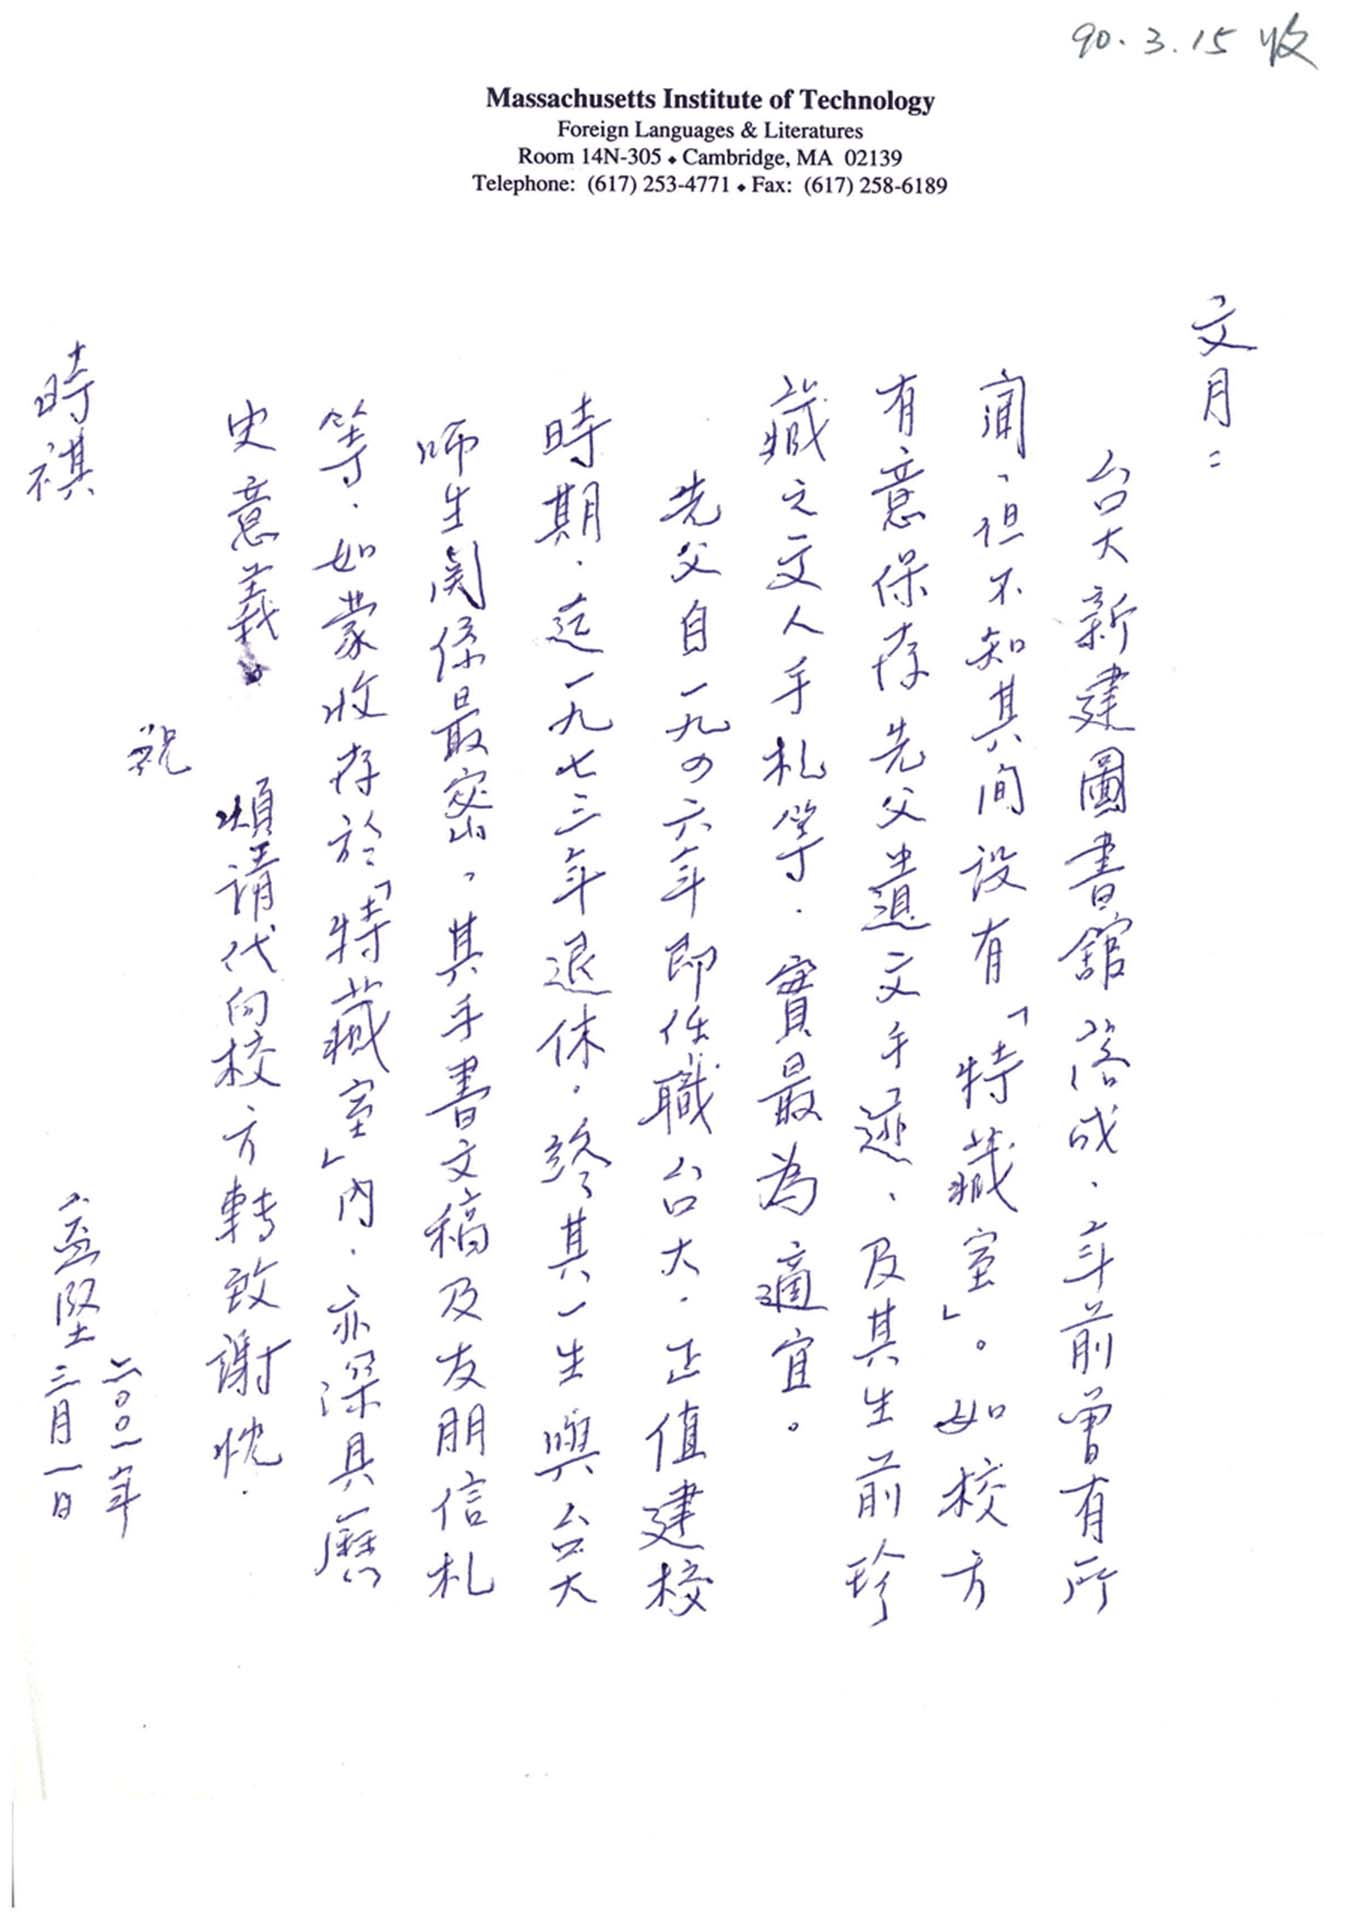 90.3.15 收
Massachusetts Institute of Technology
Foreign Languages & Literatures
Room 14N-305 ♦ Cambridge, MA 02139
Telephone: (617) 253-4771 ♦ Fax: (617) 258-6189
文月：
台大新建圖書館落成、年前曾有所
聞、但不知其間設有「特藏室」。如校方
有意保存先父遺文手迹、及其生前珍
藏之文人手札等．實最為適宜。
先父自一九四六年即任職台大．正值建校
時期．迄一九七三年退休．終其一生與台大
师生関係最密、其手書文稿及友朋信札
等．如蒙收存於「特藏室」內．亦深具歷
史意義。
煩请代向校方轉致謝忱．
祝
時祺
益堅
二〇〇一年
三月一日